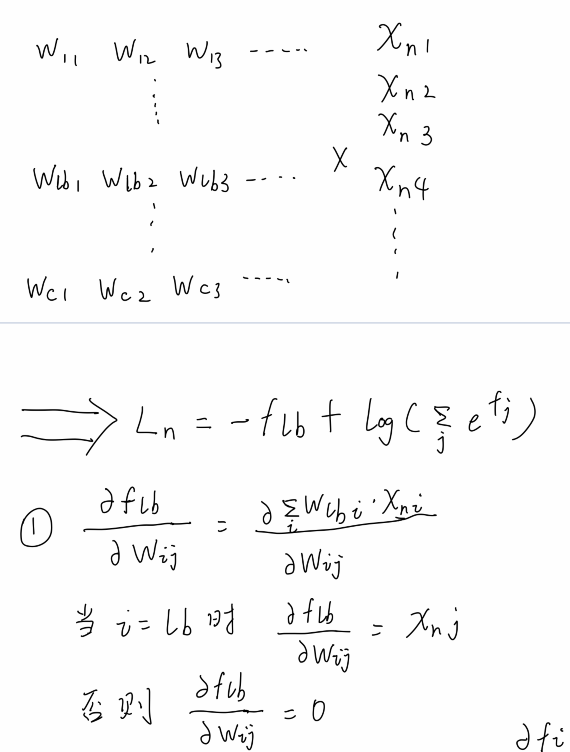 W₁₁ W₁₂ W₁₃ ····· Xₙ₁
Xₙ₂
Xₙ₃
W_lb1 W_lb2 W_lb3 ···· × Xₙ₄
W_c1 W_c2 W_c3 ·····
⟹ Lₙ = -f_lb + log(∑_j e^{f_j})
① ∂f_lb/∂W_ij = ∂∑_i W_lbi · X_ni/∂W_ij
当 i = lb 时 ∂f_lb/∂W_ij = X_nj
否则 ∂f_lb/∂W_ij = 0
∂f_i